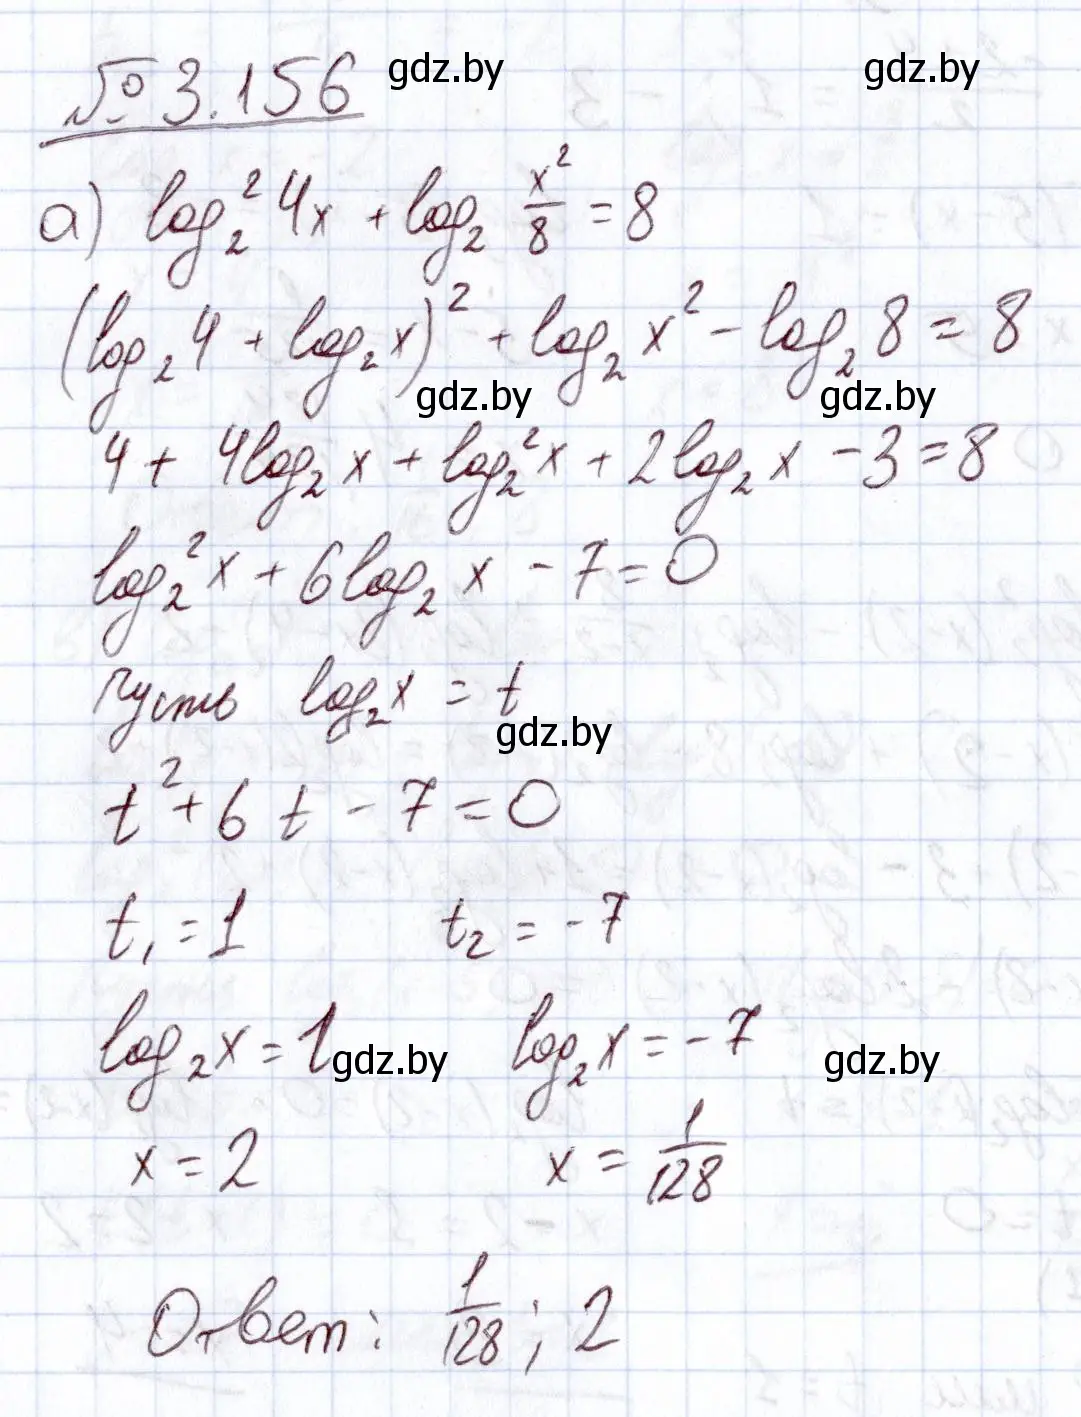 № 3.156 gdz.by gdz.by
а) log₂² 4x + log₂ x²/8 = 8
(log₂ 4 + log₂ x)² + log₂ x² - log₂ 8 = 8
gdz.by gdz.by
4 + 4log₂ x + log₂² x + 2log₂ x - 3 = 8
log₂² x + 6log₂ x - 7 = 0
пусть log₂ x = t
gdz.by
t² + 6t - 7 = 0
t₁ = 1 t₂ = -7
log₂ x = 1 log₂ x = -7
gdz.by gdz.by
x = 2 x = 1/128
Ответ: 1/128; 2